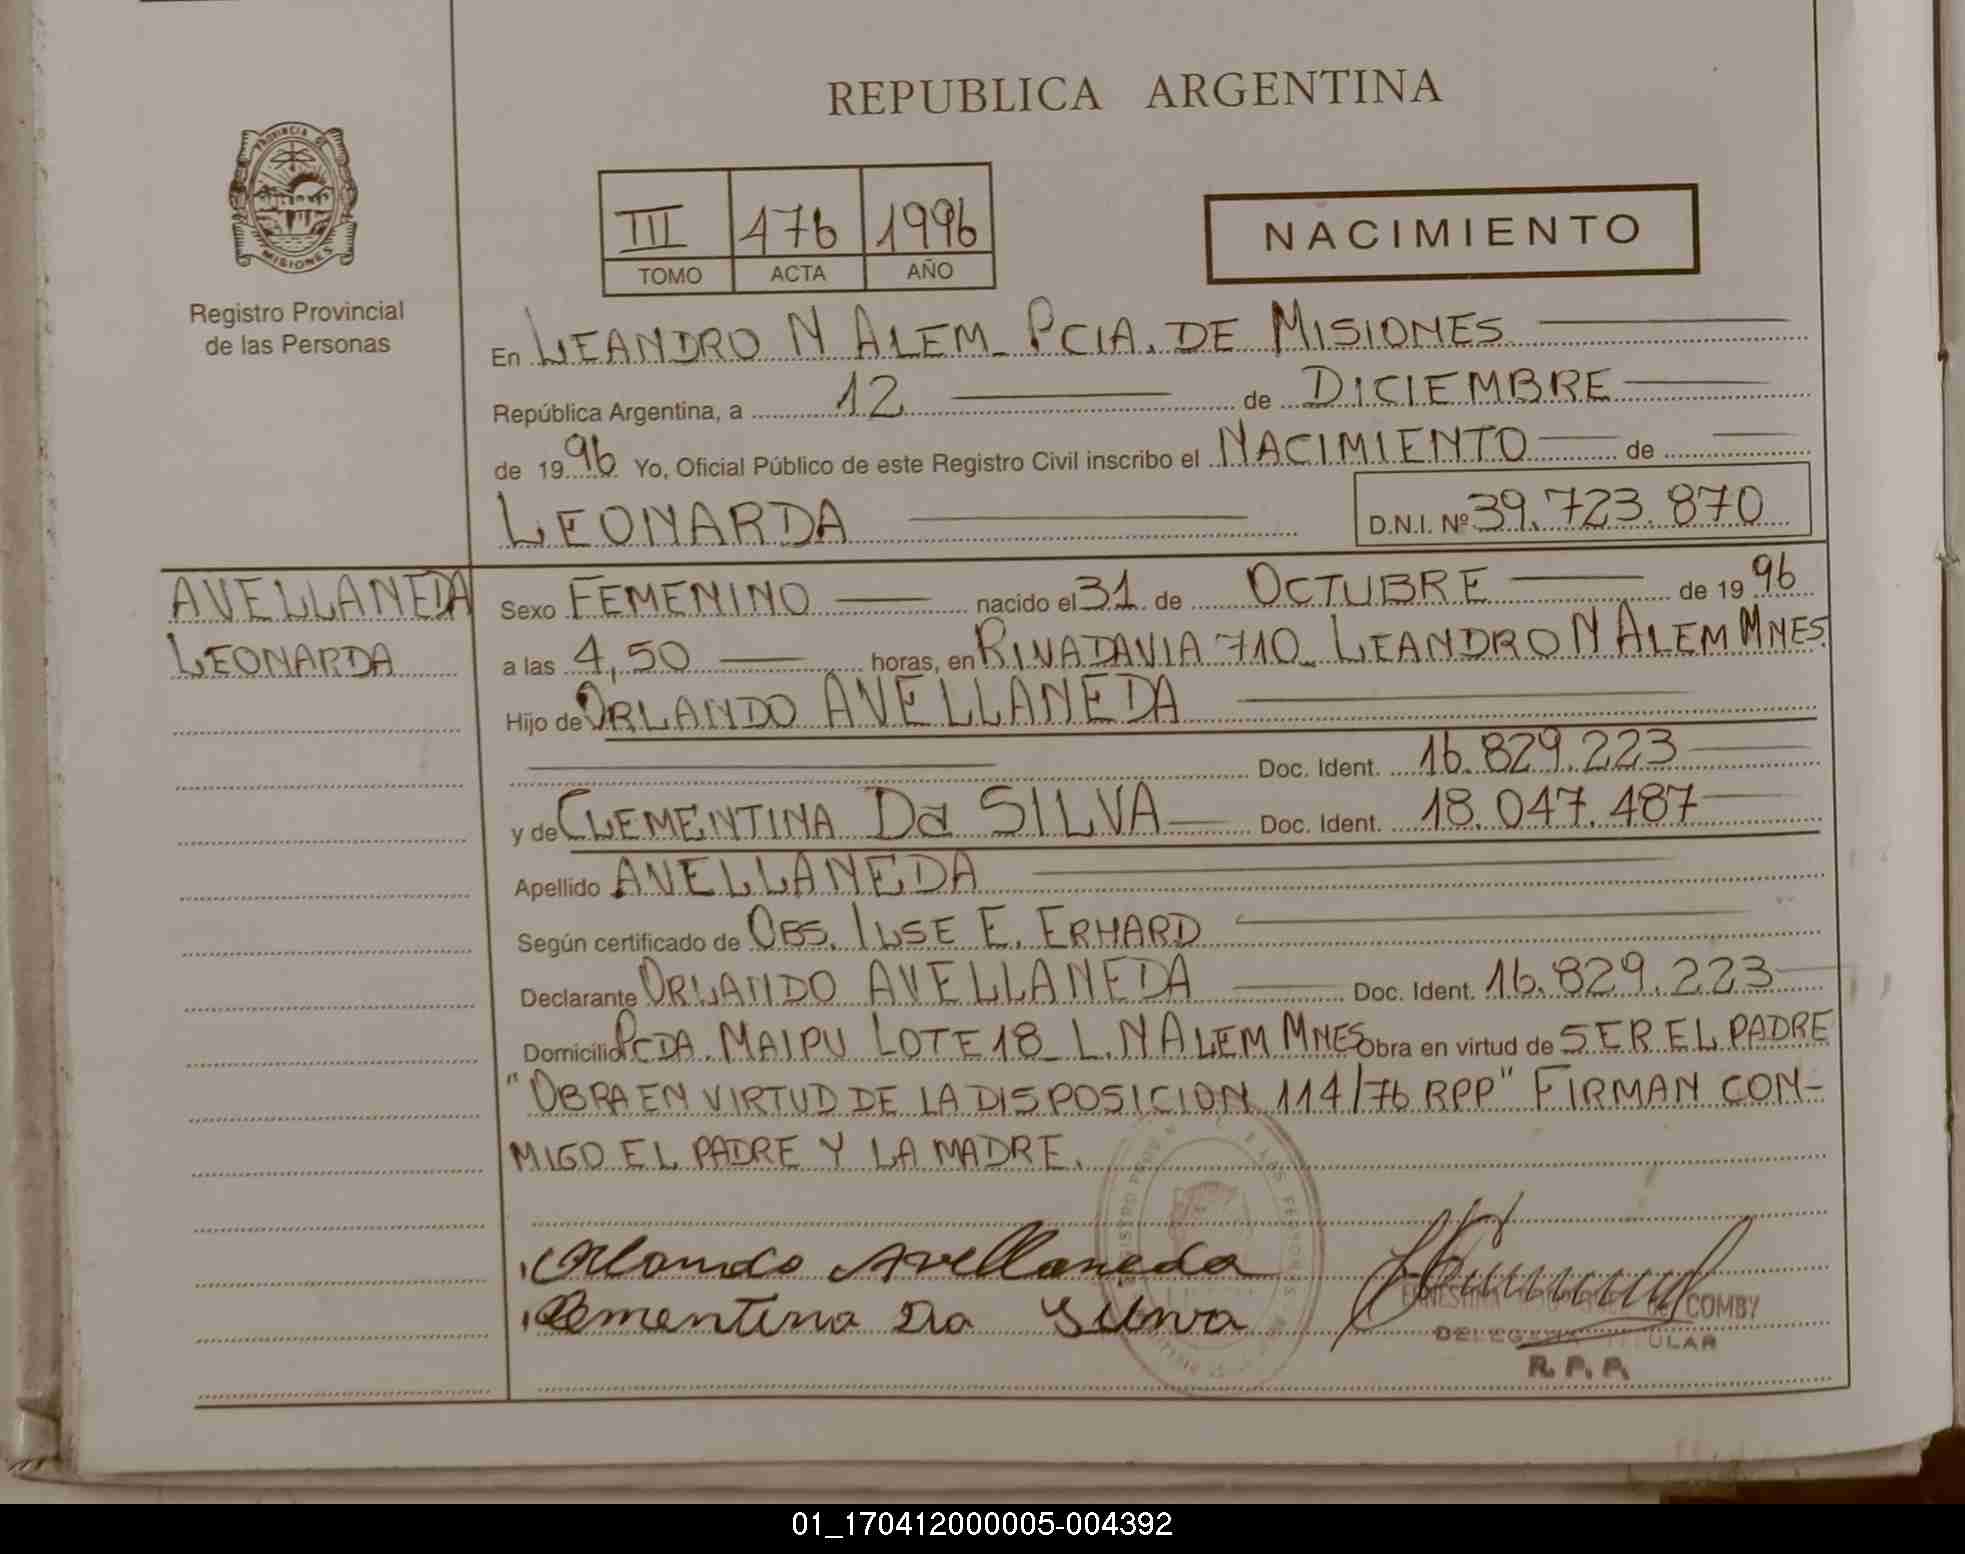 REPUBLICA ARGENTINA
PROVINCIA DE
MISIONES
Registro Provincial
de las Personas
III 476 1996
TOMO ACTA AÑO
NACIMIENTO
En LEANDRO N ALEM_ PCIA. DE MISIONES
República Argentina, a 12 de DICIEMBRE
de 1996 Yo, Oficial Público de este Registro Civil inscribo el NACIMIENTO de
LEONARDA D.N.I. Nº 39.723.870
AVELLANEDA
LEONARDA
Sexo FEMENINO nacido el 31 de OCTUBRE de 1996
a las 4,50 horas, en RIVADAVIA 710_ LEANDRO N ALEM MNES.
Hijo de ORLANDO AVELLANEDA
Doc. Ident. 16.829.223
y de CLEMENTINA Da SILVA Doc. Ident. 18.047.487
Apellido AVELLANEDA
Según certificado de OBS. ILSE E. ERHARD
Declarante ORLANDO AVELLANEDA Doc. Ident. 16.829.223
Domicilio PCDA. MAIPU LOTE 18_ L.N ALEM MNES Obra en virtud de SER EL PADRE
"OBRA EN VIRTUD DE LA DISPOSICION 114/76 RPP" FIRMAN CON-
MIGO EL PADRE Y LA MADRE.
Orlando Avellaneda
Clementina Da Silva
COMBY
TITULAR
R.P.P.
01_170412000005-004392